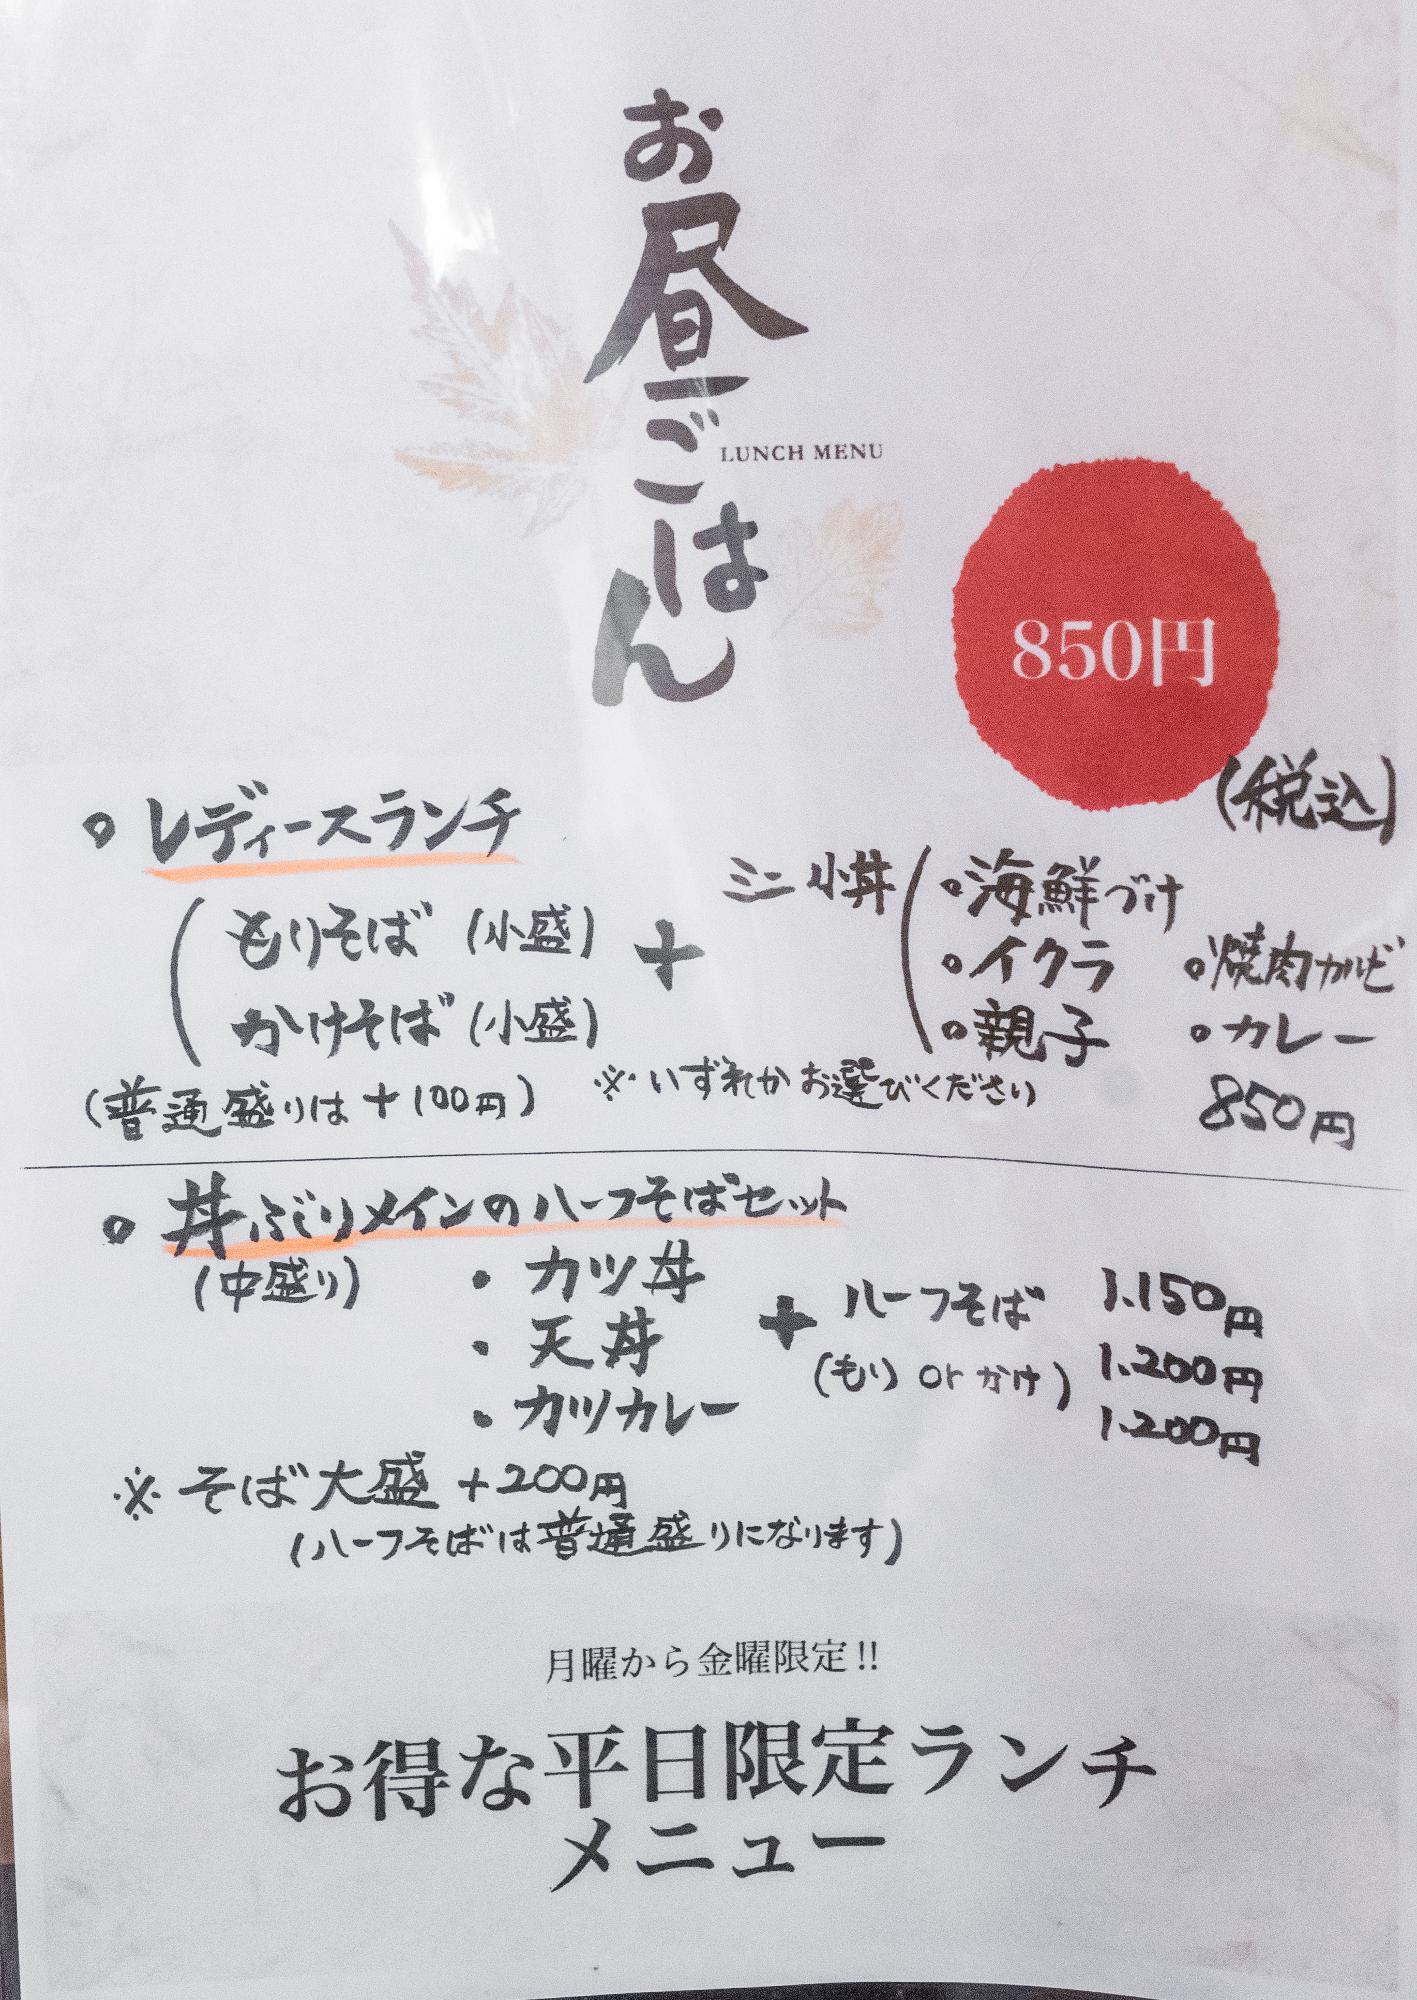 お昼ごはん
LUNCH MENU
850円
(税込)
○ レディースランチ
もりそば (小盛)
かけそば (小盛)
+
ミニ小丼
○海鮮づけ
○イクラ ○焼肉カルビ
○親子 ○カレー
(普通盛りは+100円) ※いずれかお選びください
850円
○ 丼ぶりメインのハーフそばセット
(中盛り)
・カツ丼
・天丼
・カツカレー
+ ハーフそば
(もり or かけ)
1.150円
1.200円
1.200円
※ そば大盛 +200円
(ハーフそばは普通盛りになります)
月曜から金曜限定!!
お得な平日限定ランチ
メニュー